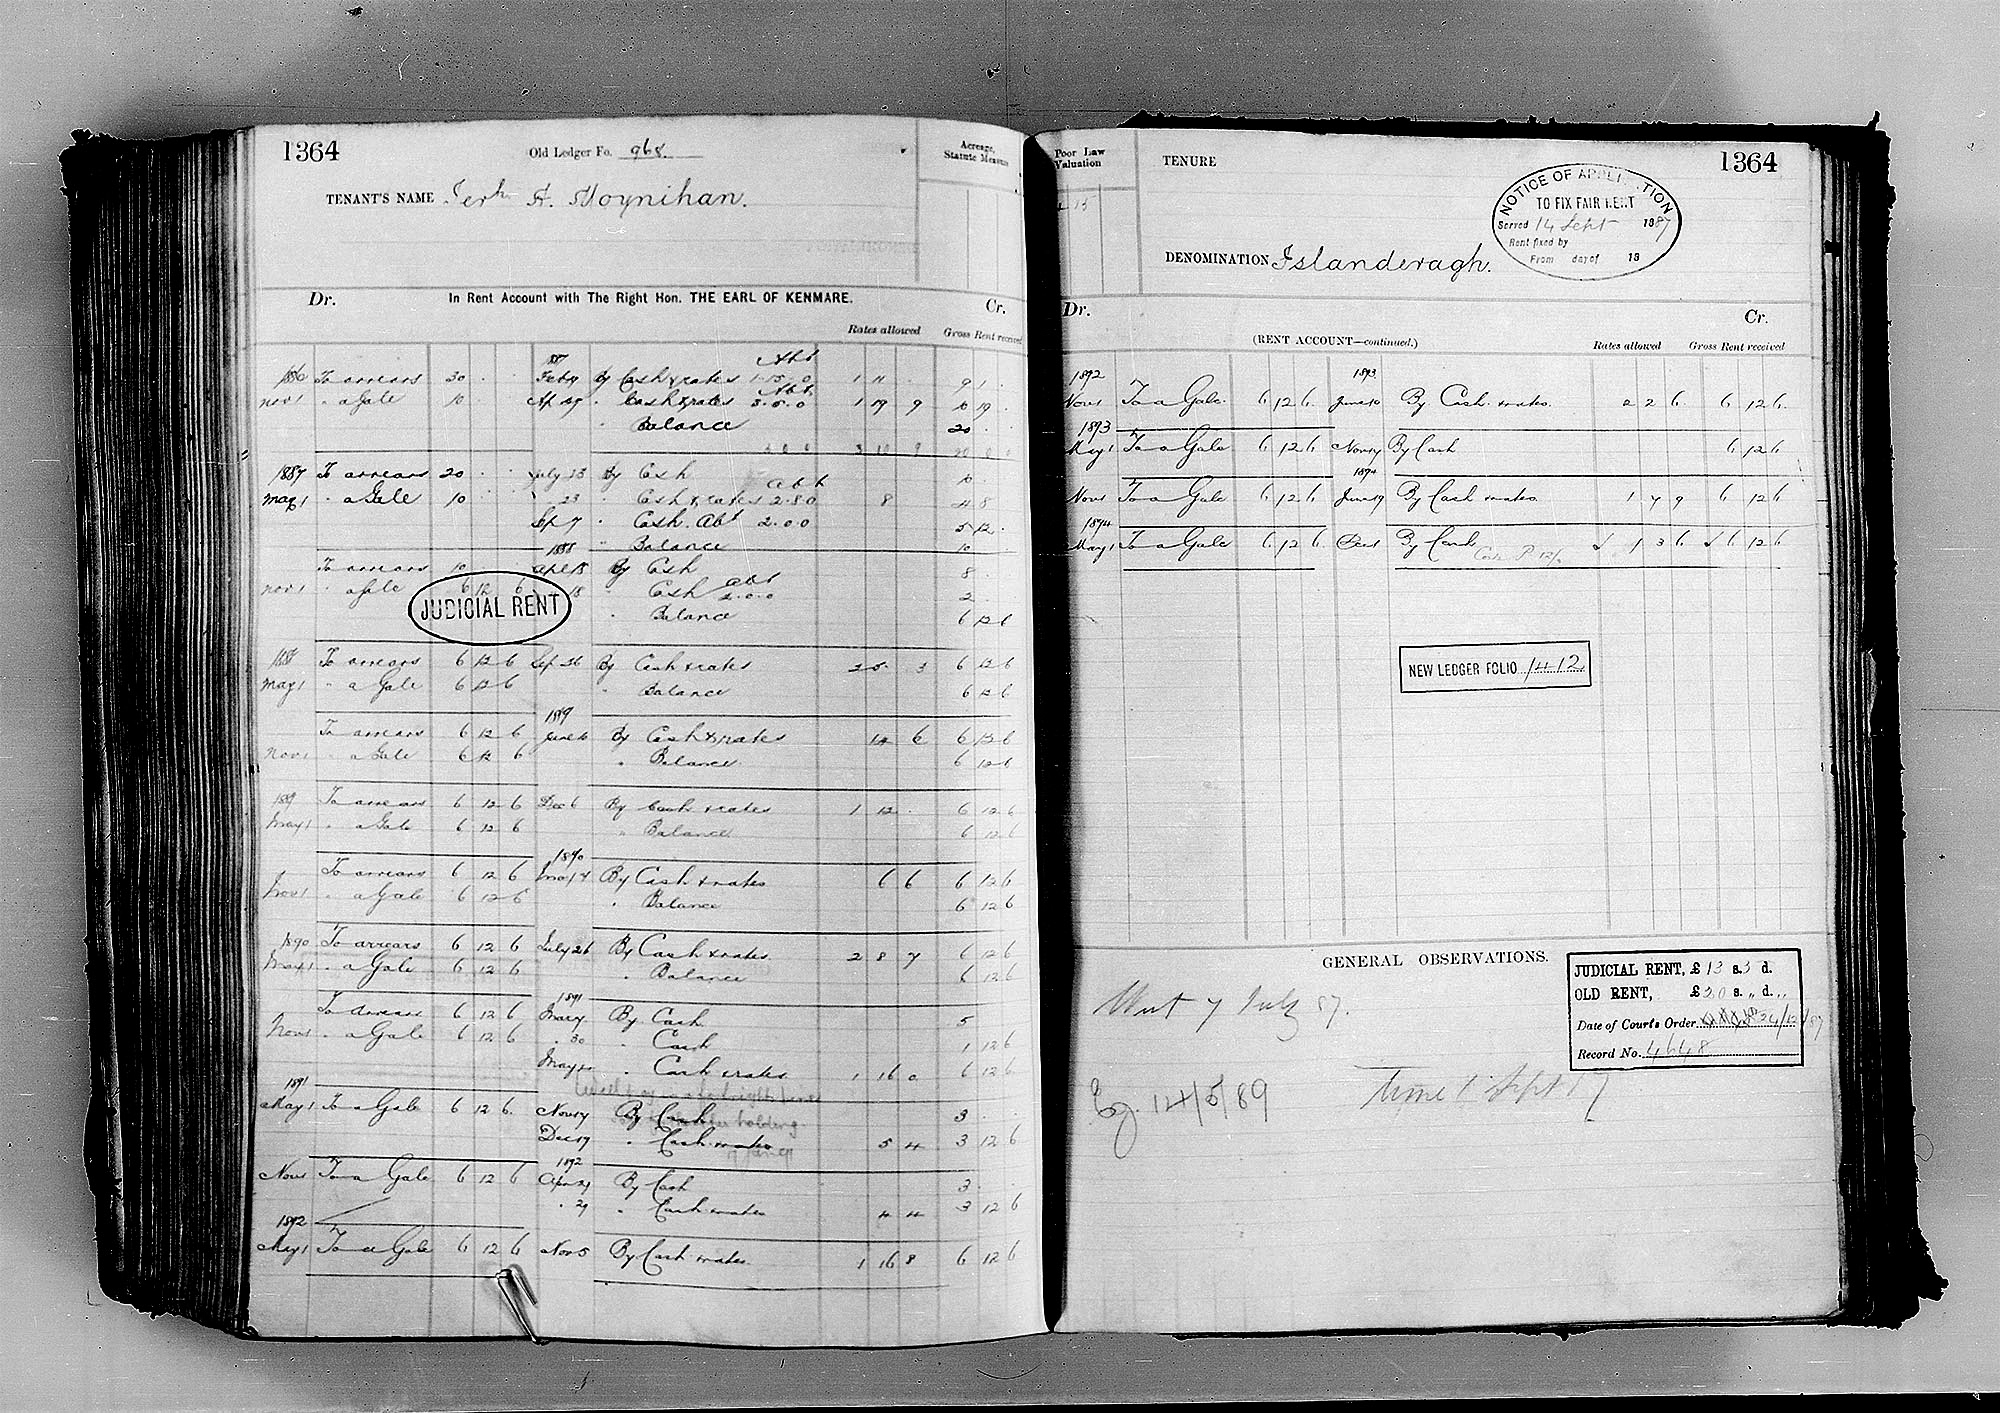 1364
Old Ledger Fo. 968.
Acreage, Statute Measure
TENANT'S NAME Jerh A. Moynihan.
Dr. In Rent Account with The Right Hon. THE EARL OF KENMARE. Cr.
Rates allowed Gross Rent received
1886 To arrears 30 . . Feb 9 By Cash & rates 1.15.0 1 11 . 9 1 .
Nov 1 " a Gale 10 . . Ap 29 " Cash & rates 3.5.0 1 19 9 10 19 .
" Balance 20 . .
1887 To arrears 20 . . July 23 By Cash 10 . .
May 1 " a Gale 10 . . " 23 " Cash & rates 2.8.0 8 4 8
Sep 7 " Cash. Abt 2.0.0 5 12 .
" Balance 10
1888
To arrears 10 Apl 18 By Cash 8 .
Nov 1 " a Gale 6 12 6 18 " Cash Abt 2.0.0 2 .
JUDICIAL RENT
" Balance 6 12 6
1888 To arrears 6 12 6 Sep 26 By Cash & rates 2 5 3 6 12 6
May 1 " a Gale 6 12 6 " Balance 6 12 6
1889
To arrears 6 12 6 June 10 By Cash & rates 14 6 6 12 6
Nov 1 " a Gale 6 12 6 " Balance 6 12 6
1889 To arrears 6 12 6 Dec 6 By Cash & rates 1 12 . 6 12 6
May 1 " a Gale 6 12 6 " Balance 6 12 6
1890
To arrears 6 12 6 May 4 By Cash & rates 6 6 6 12 6
Nov 1 " a Gale 6 12 6 " Balance 6 12 6
1890 To arrears 6 12 6 July 26 By Cash & rates 2 8 7 6 12 6
May 1 " a Gale 6 12 6 " Balance 6 12 6
1891
To arrears 6 12 6 Mar 7 By Cash 5
Nov 1 " a Gale 6 12 6 " 30 " Cash 1 12 6
May " Cash & rates 1 16 0 6 12 6
1891
May 1 To a Gale 6 12 6 Nov 17 By Cash 3 .
holding
Dec 19 " Cash & rates 5 4 3 12 6
1892
Nov 1 To a Gale 6 12 6 Apr 29 By Cash 3 .
" 29 " Cash & rates 4 4 3 12 6
1892
May 1 To a Gale 6 12 6 Nov 5 By Cash & rates 1 16 8 6 12 6
Poor Law Valuation
15
TENURE
1364
NOTICE OF APPLICATION
TO FIX FAIR RENT
Served 14 Sept 1887
Rent fixed by
From day of 18
DENOMINATION Islanderagh.
Dr. Cr.
(RENT ACCOUNT—continued.) Rates allowed Gross Rent received
1892 1893
Nov 1 To a Gale 6 12 6 June 10 By Cash & rates 2 2 6 6 12 6
1893
May 1 To a Gale 6 12 6 Nov 17 By Cash 6 12 6
1894
Nov 1 To a Gale 6 12 6 June 19 By Cash & rates 1 7 9 6 12 6
1894
May 1 To a Gale 6 12 6 Dec 1 By Cash 1 3 6 6 12 6
NEW LEDGER FOLIO 1412
GENERAL OBSERVATIONS.
JUDICIAL RENT, £13 s. 5 d.
OLD RENT, £20 s. " d. "
Date of Court's Order 24/12/87
Record No. 4648
Writ 7 July 87.
Ej. 14/5/89
time 1 Sept 87